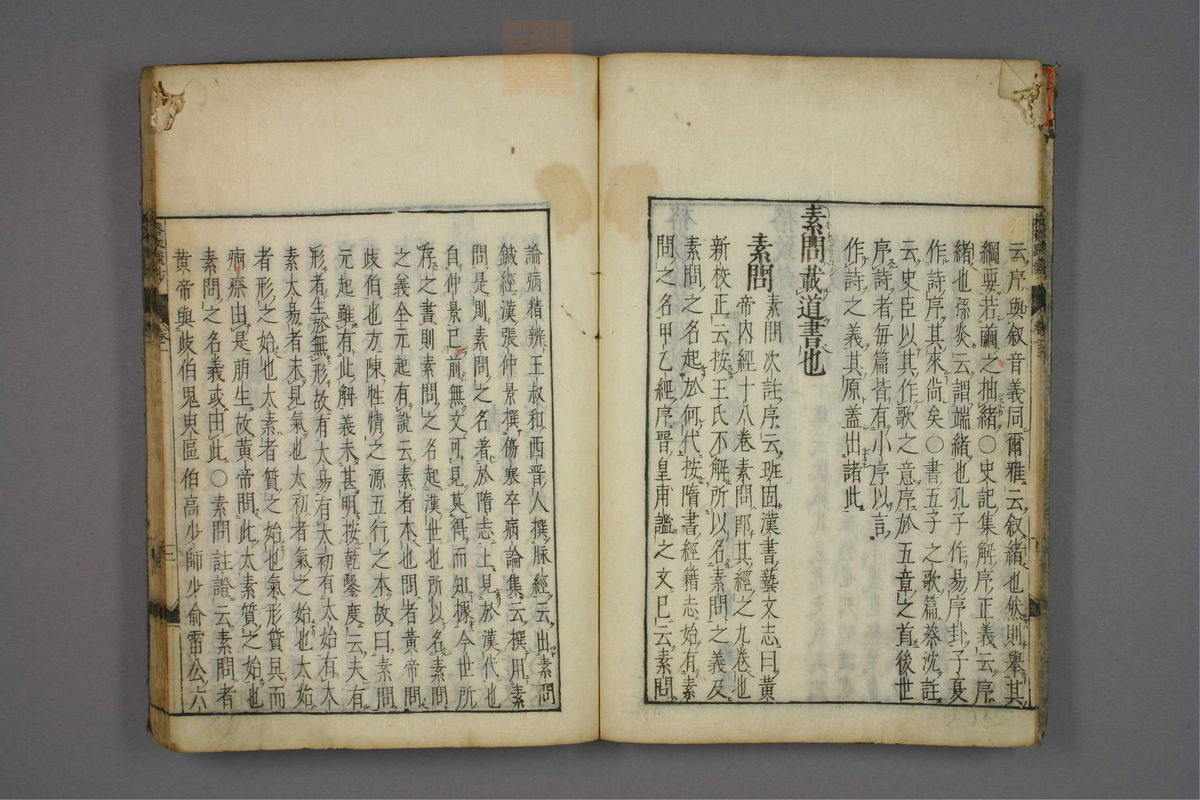 云序與叙音義同爾雅云叙緒也然則舉其
綱要若繭之抽緒○史記集解序正義云序
緒也孫炎云謂端緒也孔子作易序卦子夏
作詩序其來尚矣○書五子之歌篇蔡沈註
云史臣以其作歌之意序於五章之首後世
序詩者每篇皆有小序以言
作詩之義其原蓋出諸此
素問載道書也
素問 素問次註序云班固漢書藝文志曰黃
帝内經十八卷素問即其經之九卷也
新校正云按王氏不解所以名素問之義及
素問之名起於何代按隋書經籍志始有素
問之名甲乙經序晉皇甫謐之文已云素問
論病精辨王叔和西晋人撰脉經云出素問
鍼經漢張仲景撰傷寒卒病論集云撰用素
問是則素問之名著於隋志上見於漢代也
自仲景已前無文可見莫得而知據今世所
存之書則素問之名起漢世也所以名素問
之義全元起有説云素者本也問者黃帝問
歧伯也方陳性情之源五行之本故曰素問
元起雖有此解義未甚明按乾鑿度云夫有
形者生於無形故有太易有太初有太始有太
素太易者未見氣也太初者氣之始也太始
者形之始也太素者質之始也氣形質具而
痾瘵由是萌生故黃帝問此太素質之始也
素問之名義或由此○素問註證云素問者
黃帝與歧伯鬼臾區伯高少師少俞雷公六